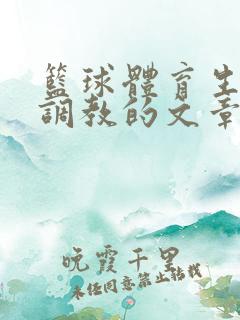 籃球體育生
調教的文章
晚霞千里
未经同意禁止转载